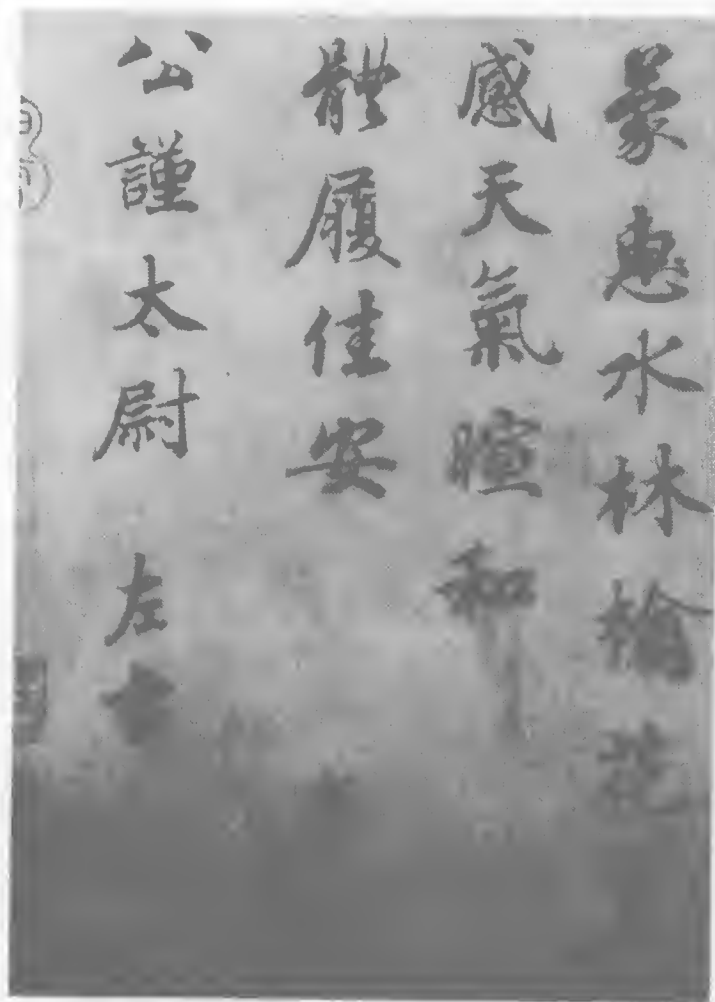 蒙惠水林檎花
感天氣暄和
體履佳安
公謹太尉 左右